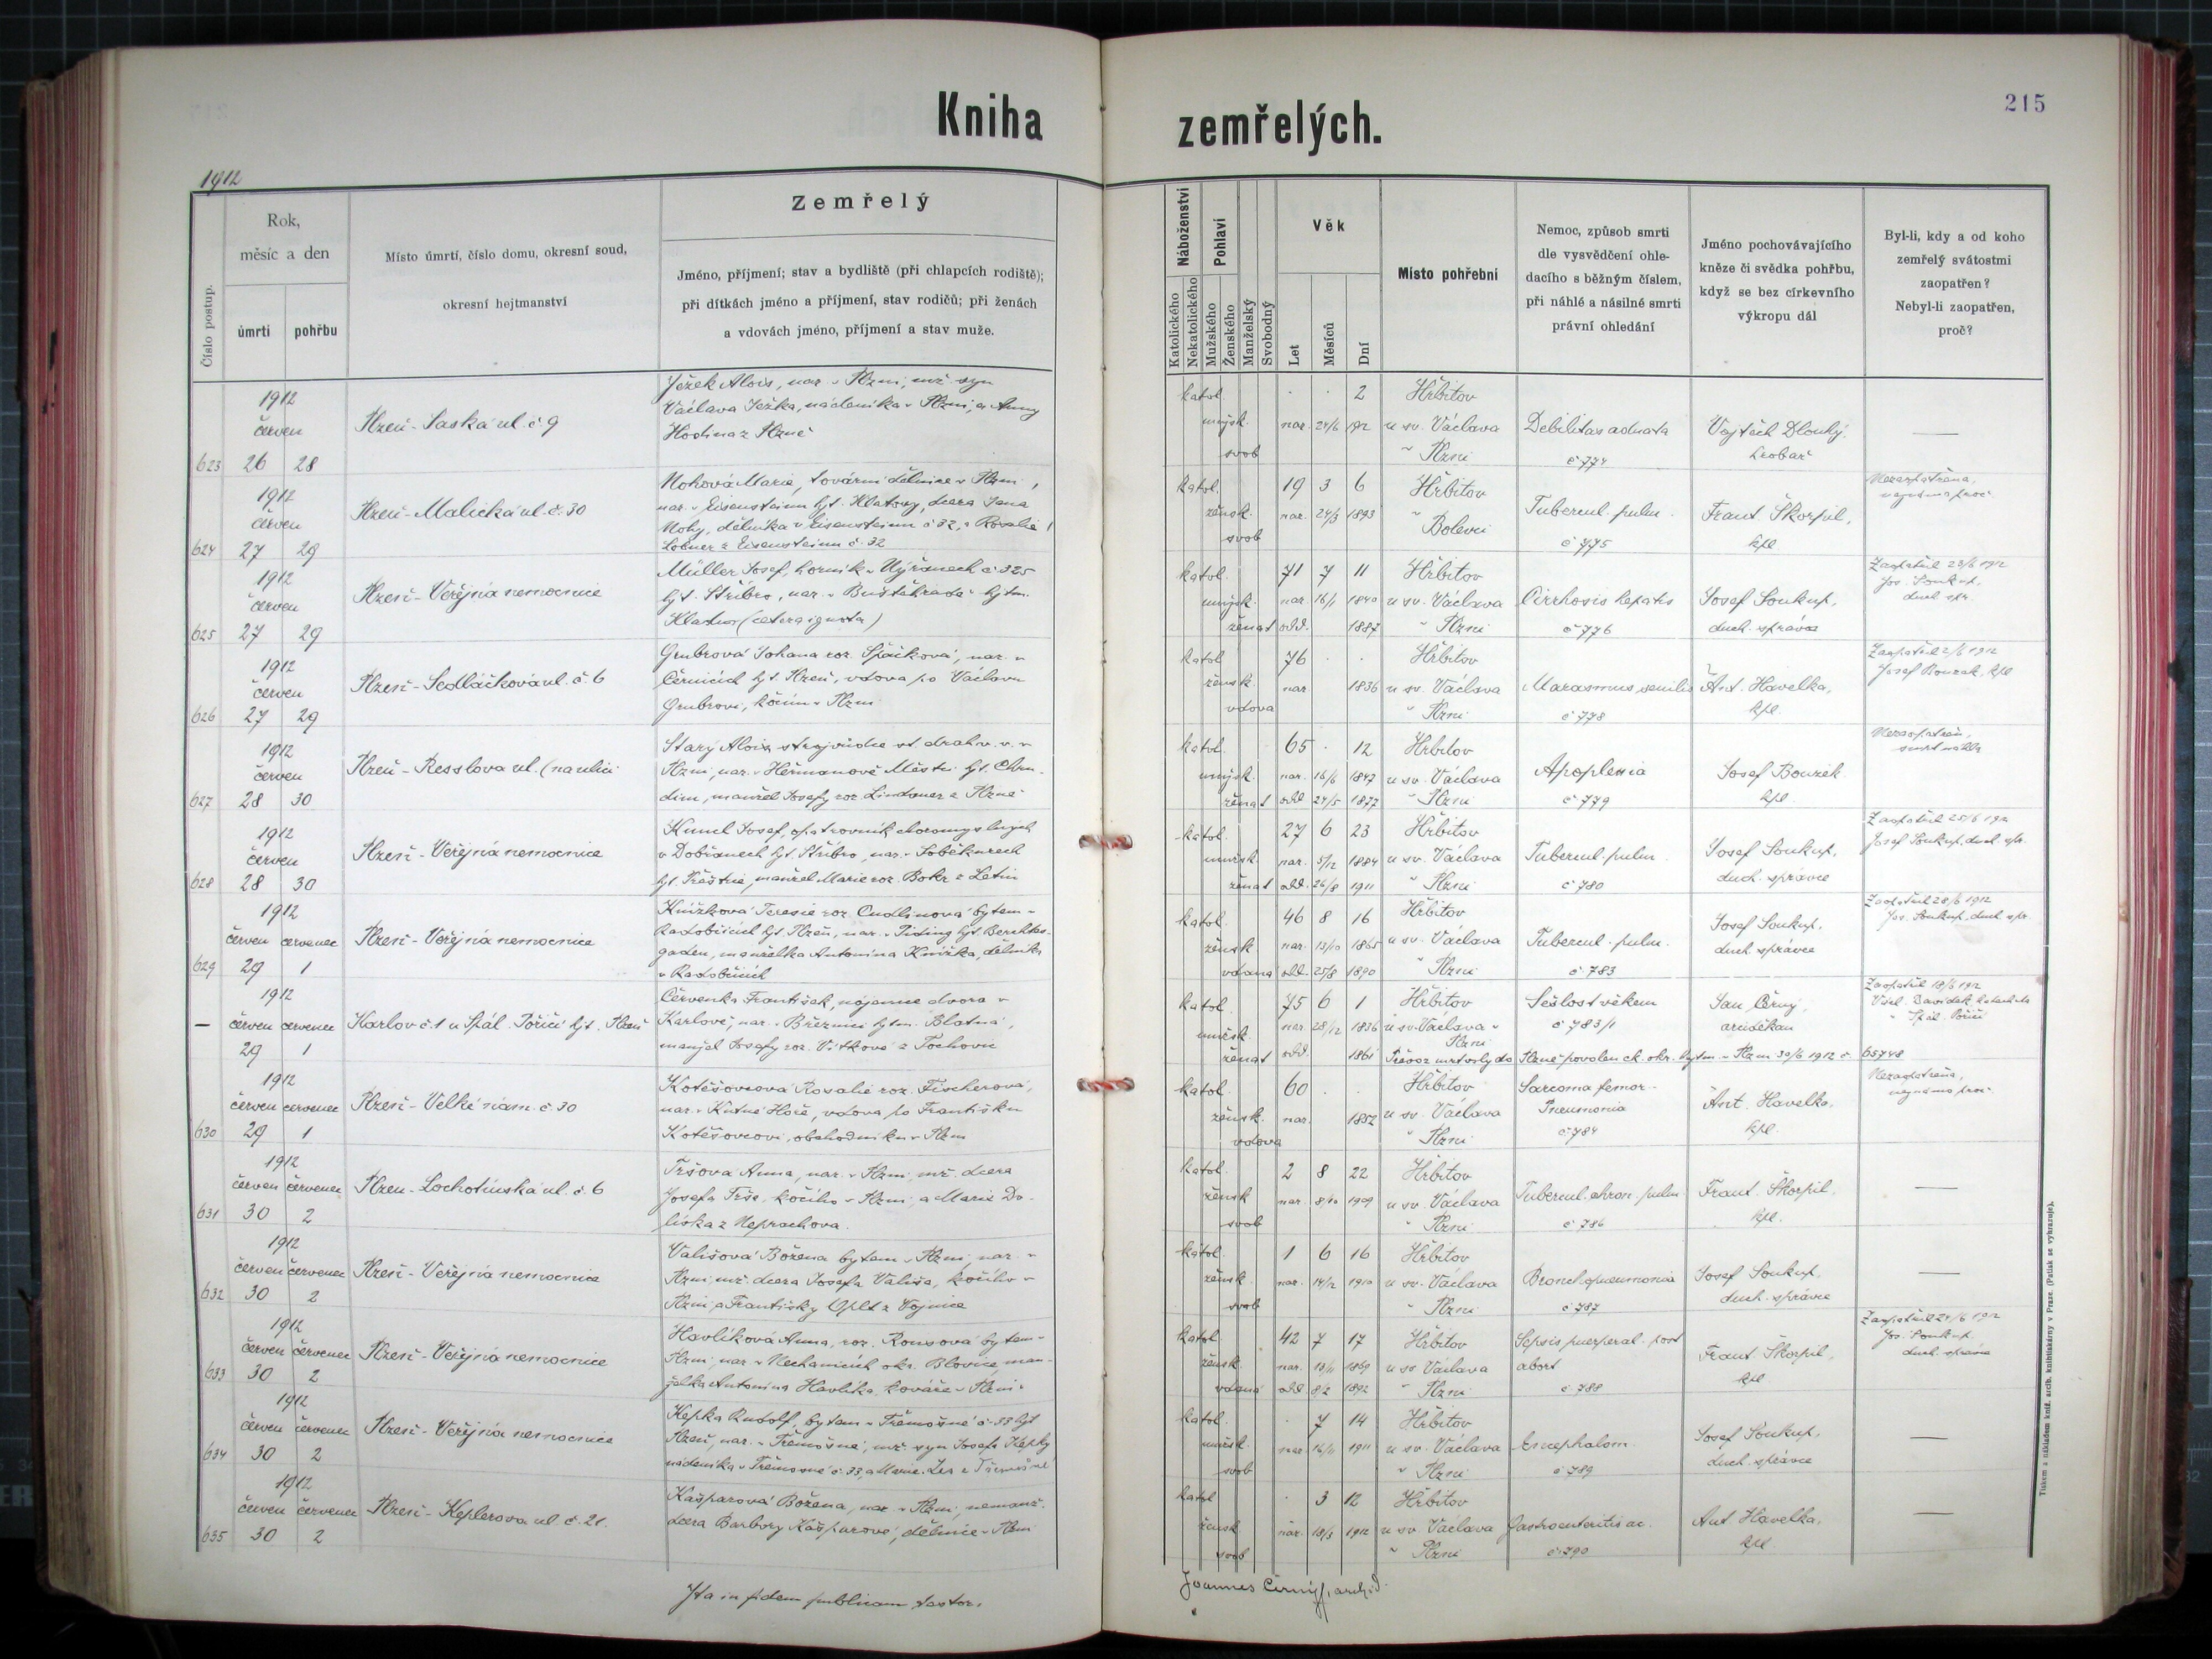 Kniha
zemřelých.
215
1912
Číslo postup.
Rok,
měsíc a den
úmrtí
pohřbu
Místo úmrtí, číslo domu, okresní soud,
okresní hejtmanství
Zemřelý
Jméno, příjmení; stav a bydliště (při chlapcích rodiště);
při dítkách jméno a příjmení, stav rodičů; při ženách
a vdovách jméno, příjmení a stav muže.
Náboženství
Katolického
Nekatolického
Pohlaví
Mužského
Ženského
Manželský
Svobodný
Věk
Let
Měsíců
Dní
Místo pohřební
Nemoc, způsob smrti
dle vysvědčení ohle-
dacího s běžným číslem,
při náhlé a násilné smrti
právní ohledání
Jméno pochovávajícího
kněze či svědka pohřbu,
když se bez církevního
výkropu dál
Byl-li, kdy a od koho
zemřelý svátostmi
zaopatřen?
Nebyl-li zaopatřen,
proč?
1912
červen
623 26 28
Plzeň - Saská ul. č 9
Ježek Alois, nar. v Plzni, mž. syn
Václava Ježka, nádeníka v Plzni, a Anny
Hodina z Plzně
katol. 2
mužsk. nar. 24/6 1912
svob
Hřbitov
u sv. Václava
v Plzni
Debilitas adnata
č 774
Vojtěch Dlouhý.
hrobař
—
1912
červen
624 27 29
Plzeň - Malická ul. č. 30
Nohová Marie, tovární dělnice v Plzni,
nar. v Eisensteinu hjt. Klatovy, dcera Jana
Nohy, dělníka v Eisensteinu č 32, a Rosalie
z Eisensteinu č. 32
katol. 19 3 6
žensk. nar. 24/3 1893
svob
Hřbitov
v Bolevci
Tubercul. pulm.
č 775
Frant. Škorpil,
kpl.
Nezaopatřena,
neznámo proč.
1912
červen
625 27 29
Plzeň - Veřejná nemocnice
Müller Josef, horník v Nýřanech č 325
hjt. Stříbro, nar. v Buštěhradě hjtm.
Kladno (cetera ignota)
katol. 71 7 11
mužsk. nar. 16/1 1840
ženat odd. 1887
Hřbitov
u sv. Václava
v Plzni
Cirrhosis hepatis
č 776
Josef Soukup,
duch. správce
Zaopatřil 23/6 1912
Jos. Soukup,
duch. spr.
1912
červen
626 27 29
Plzeň - Sedláčkova ul. č. 6
Grubrová Johana roz. Špačková, nar. v
Černicích hjt. Plzeň, vdova po Václavu
Grubrovi, kočím v Plzni
katol 76
žensk. nar. 1836
vdova
Hřbitov
u sv. Václava
v Plzni
Marasmus senilis
č 778
Ant. Havelka,
kpl.
Zaopatřil 2/6 1912
Josef Bouzek, kpl
1912
červen
627 28 30
Plzeň - Resslova ul. (na ulici
Starý Alois strojvůdce st. drah v. v. v
Plzni, nar. v Heřmanově Městci hjt. Chru-
dim, manžel Josefy roz. Lindauer z Plzně
katol. 65 12
mužsk. nar. 16/6 1847
ženat odd 27/5 1877
Hřbitov
u sv. Václava
v Plzni
Apoplexia
č 779
Josef Bouzek
kpl.
Nezaopatřen,
smrt náhlá
1912
červen
628 28 30
Plzeň - Veřejná nemocnice
Kuncl Josef, opatrovník choromyslných
v Dobřanech hjt. Stříbro, nar. v Soběkurech
hjt. Přeštice, manžel Marie roz. Bokr z Letin
katol. 27 6 23
mužsk. nar. 5/12 1884
ženat odd. 26/8 1911
Hřbitov
u sv. Václava
v Plzni
Tubercul. pulm.
č 780
Josef Soukup,
duch. správce
Zaopatřil 25/6 1912
Josef Soukup, duch. spr.
1912
červen červenec
629 29 1
Plzeň - Veřejná nemocnice
Knížková Teresie roz. Cudlinová bytem v
Radobčicích hjt. Plzeň, nar. v Piding hjt. Berchtes-
gaden, manželka Antonína Knížka, dělníka
v Radobčicích
katol. 46 8 16
žensk nar. 13/10 1865
vdaná odd. 25/8 1890
Hřbitov
u sv. Václava
v Plzni
Tubercul. pulm.
č 783
Josef Soukup,
duch správce
Zaopatřil 28/6 1912
Jos. Soukup, duch spr.
1912
— červen červenec
29 1
Karlov č. 1 u Spál. Poříčí hjt. Plzeň
Červenka František, nájemce dvora v
Karlově, nar. v Březnici hjtm. Blatná,
manžel Josefy roz. Vítkové z Tochovic
katol 75 6 1
mužsk. nar. 28/12 1836
ženat odd. 1861
Hřbitov
u sv. Václava v
Plzni
Sešlost věkem
č 783/1
Jan Černý,
arciděkan
Zaopatřil 18/6 1912
Spál. Poříčí
Převoz mrtvoly do Plzně povolen ck. okr. hejtm. v Plzni 30/6 1912 č. 65748
1912
červen červenec
630 29 1
Plzeň - Velké nám. č 30
Kotěšovcová Rosalie roz. Fischerová,
nar. v Kutné Hoře, vdova po Františku
Kotěšovcovi, obchodníku v Plzni
katol. 60
žensk. nar. 1852
vdova
Hřbitov
u sv. Václava
v Plzni
Sarcoma femor.
Pneumonia
č. 784
Ant. Havelka,
kpl.
Nezaopatřena,
neznámo proč.
1912
červen červenec
631 30 2
Plzen - Lochotínská ul. č. 6
Tršová Anna, nar. v Plzni, mž. dcera
Josefa Trše, kočího v Plzni a Marie Do-
z Neprachova.
katol. 2 8 22
žensk nar. 8/10 1909
svob
Hřbitov
u sv. Václava
v Plzni
Tubercul. chron. pulm.
č 786
Frant. Škorpil,
kpl.
—
1912
červen červenec
632 30 2
Plzeň - Veřejná nemocnice
Vališová Božena bytem v Plzni, nar. v
Plzni, mž. dcera Josefa Vališa, kočího v
Plzni, a Františky Oplt z Vojnice
katol. 1 6 16
žensk nar. 14/12 1910
svob
Hřbitov
u sv. Václava
v Plzni
Bronchopneumonia
č 787
Josef Soukup,
duch. správce
—
1912
červen červenec
633 30 2
Plzeň - Veřejná nemocnice
Havlíková Anna, roz. Rousová bytem v
Plzni nar. v Nechanicích okr. Blovice man-
želka Antonína Havlíka, kováře v Plzni.
katol. 42 7 17
žensk. nar. 13/11 1869
vdaná odd. 8/2 1892
Hřbitov
u sv. Václava
v Plzni
Sepsis puerperal. post
abort
č 788
Frant. Škorpil,
kpl
Zaopatřil 24/6 1912
Jos. Soukup
duch. správce
1912
červen červenec
634 30 2
Plzeň - Veřejná nemocnice
Kepka Rudolf, bytem v Třemošné č. 33 hjt
Plzeň, nar. v Třemošné, mž. syn Josefa Kepky
nádeníka v Třemošné č. 33, a Marie z Třemošné
katol. 7 14
mužsk. nar. 16/11 1911
svob
Hřbitov
u sv. Václava
v Plzni
Encephalom.
č 789
Josef Soukup,
duch. správce
—
1912
červen červenec
635 30 2
Plzeň - Keplerova ul č. 21.
Kašparová Božena, nar. v Plzni, nemanž.
dcera Barbory Kašparové, dělnice v Plzni
katol 3 12
žensk nar. 18/3 1912
svob
Hřbitov
u sv. Václava
v Plzni
Gastroenteritis ac.
č. 790
Ant. Havelka,
kpl.
—
Ita in fidem publicam testor.
Joannes Černý, archid.
Tiskem a nákladem kníž. arcib. knihtiskárny v Praze. (Patisk se vyhrazuje).